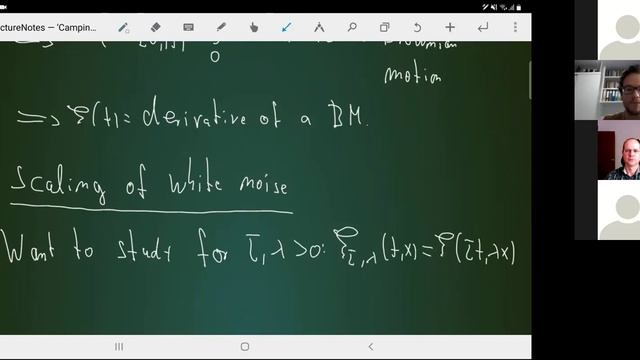 ctureNotes — 'Campin...
Brownian
0
motion
⟹ ξ(t) = derivative of a BM.
Scaling of white noise
Want to study for τ, λ > 0: ξ_τ,λ(t,x) = ξ(τt, λx)